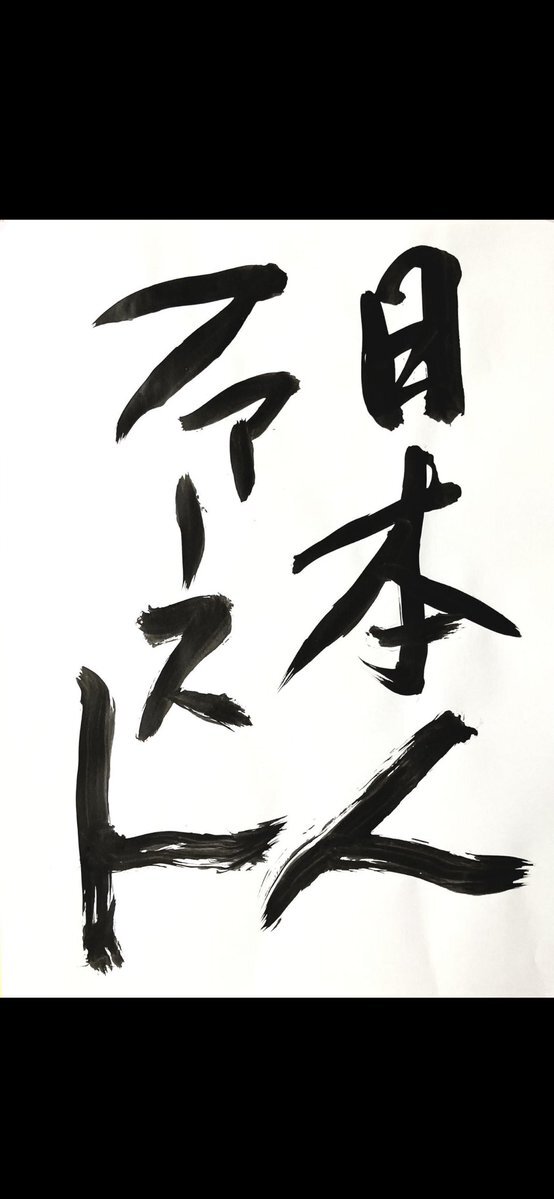 日本人
ファースト